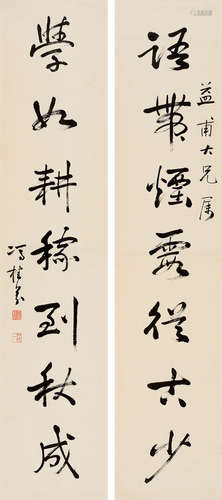 益甫大兄属
語帶煙霞從古少
學如耕稼到秋成
馮桂芬